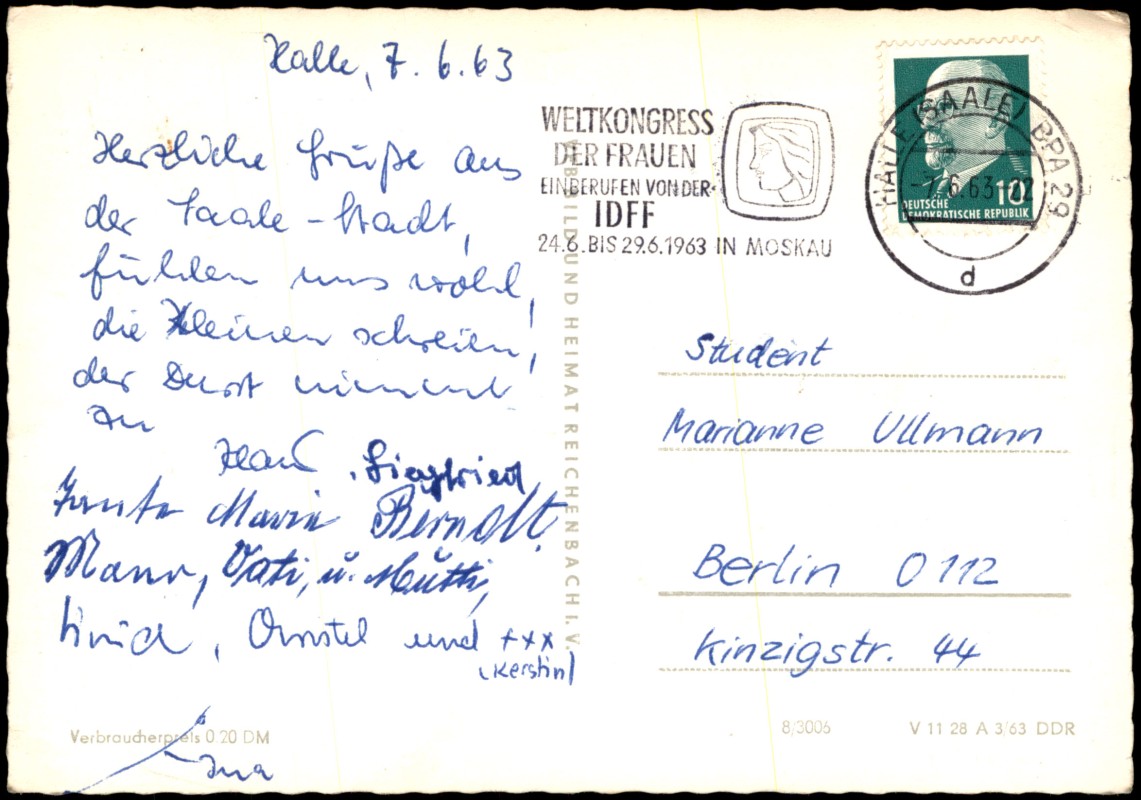 Halle, 7.6.63
Herzliche Grüße aus
der Saale-Stadt,
fühlen uns wohl,
die Kleinen schreien,
der Durst nimmt
zu
Siegfried
Tante Maria Berndt,
Vati, u. Mutti,
und +++
(Kerstin)
Verbraucherpreis 0.20 DM
BILD UND HEIMAT REICHENBACH I. V.
WELTKONGRESS
DER FRAUEN
EINBERUFEN VON DER
IDFF
24.6. BIS 29.6.1963 IN MOSKAU
HALLE (SAALE) BPA 29
-7.6.63-22
d
10
DEUTSCHE
DEMOKRATISCHE REPUBLIK
Student
Marianne Ullmann
Berlin O 112
Kinzigstr. 44
8/3006
V 11 28 A 3/63 DDR